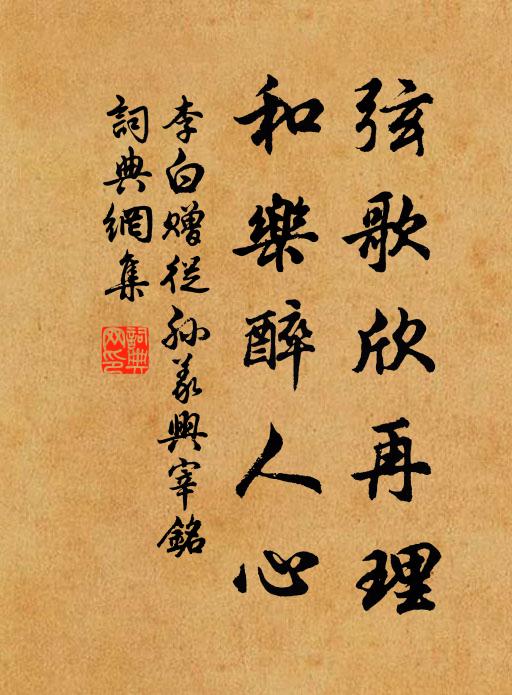 弦歌欣再理
和樂醉人心
李白赠從孙义興宰銘
詞典網集
詞典网印